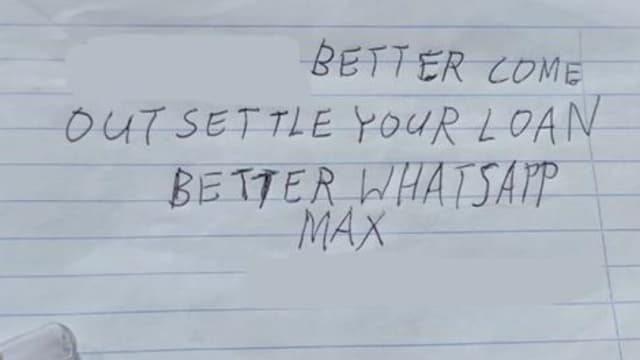 BETTER COME
OUT SETTLE YOUR LOAN
BETTER WHATSAPP
MAX